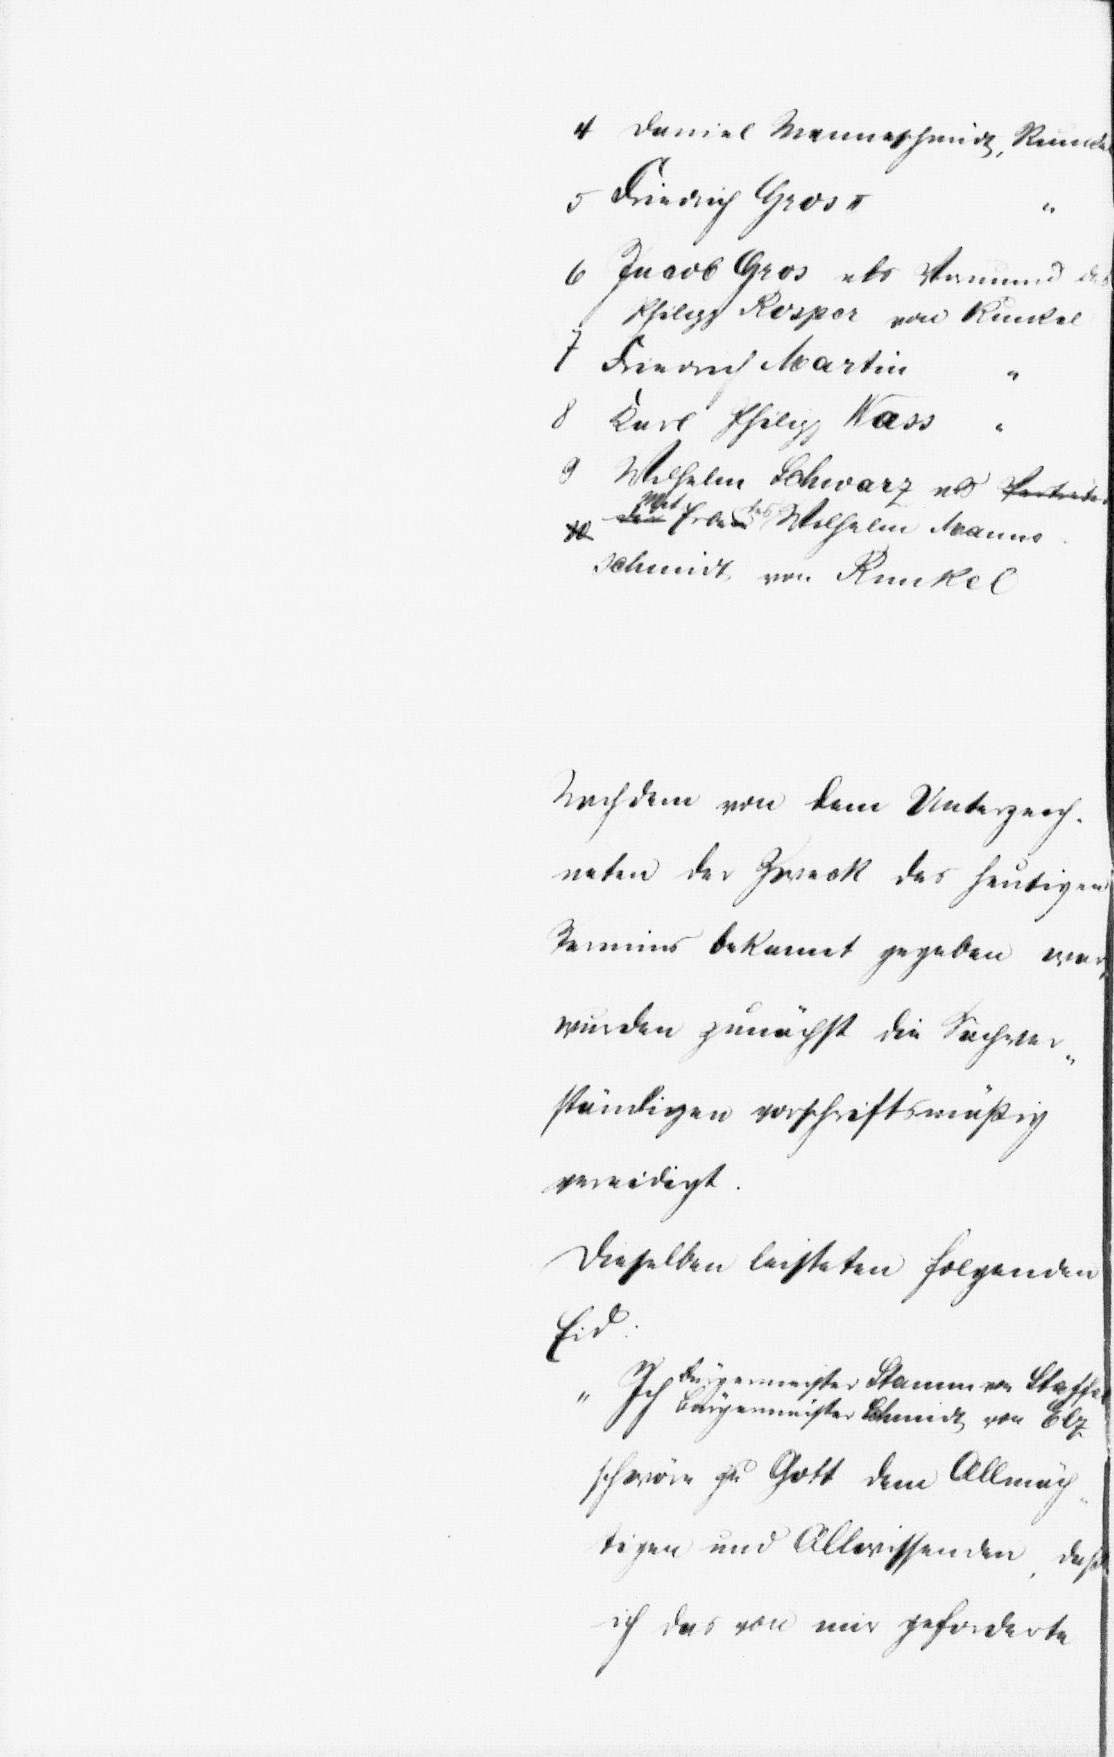 4 Daniel Manneschmidt, Runkel
5 Friedrich Gros II "
6 Jacob Gros als Vormund des
Philipp Rosper von Runkel
7 Friedrich Martin "
8 Karl Philipp Wass "
9 Wilhelm Schwarz als Vertreter
Mit
10 der Erben des Wilhelm Manne
schmidt von Runkel
Nachdem von dem Unterzeich-
neten der Zweck des heutigen
Termins bekannt gegeben war,
wurden zunächst die Sachver-
ständigen vorschriftsmäßig
vereidigt.
Dieselben leisteten folgenden
Eid:
Bürgermeister Stamm von Staffel
" Ich Bürgermeister Schmidt von Elz
schwöre zu Gott dem Allmäch-
tigen und Allwissenden, daß
ich das von mir geforderte